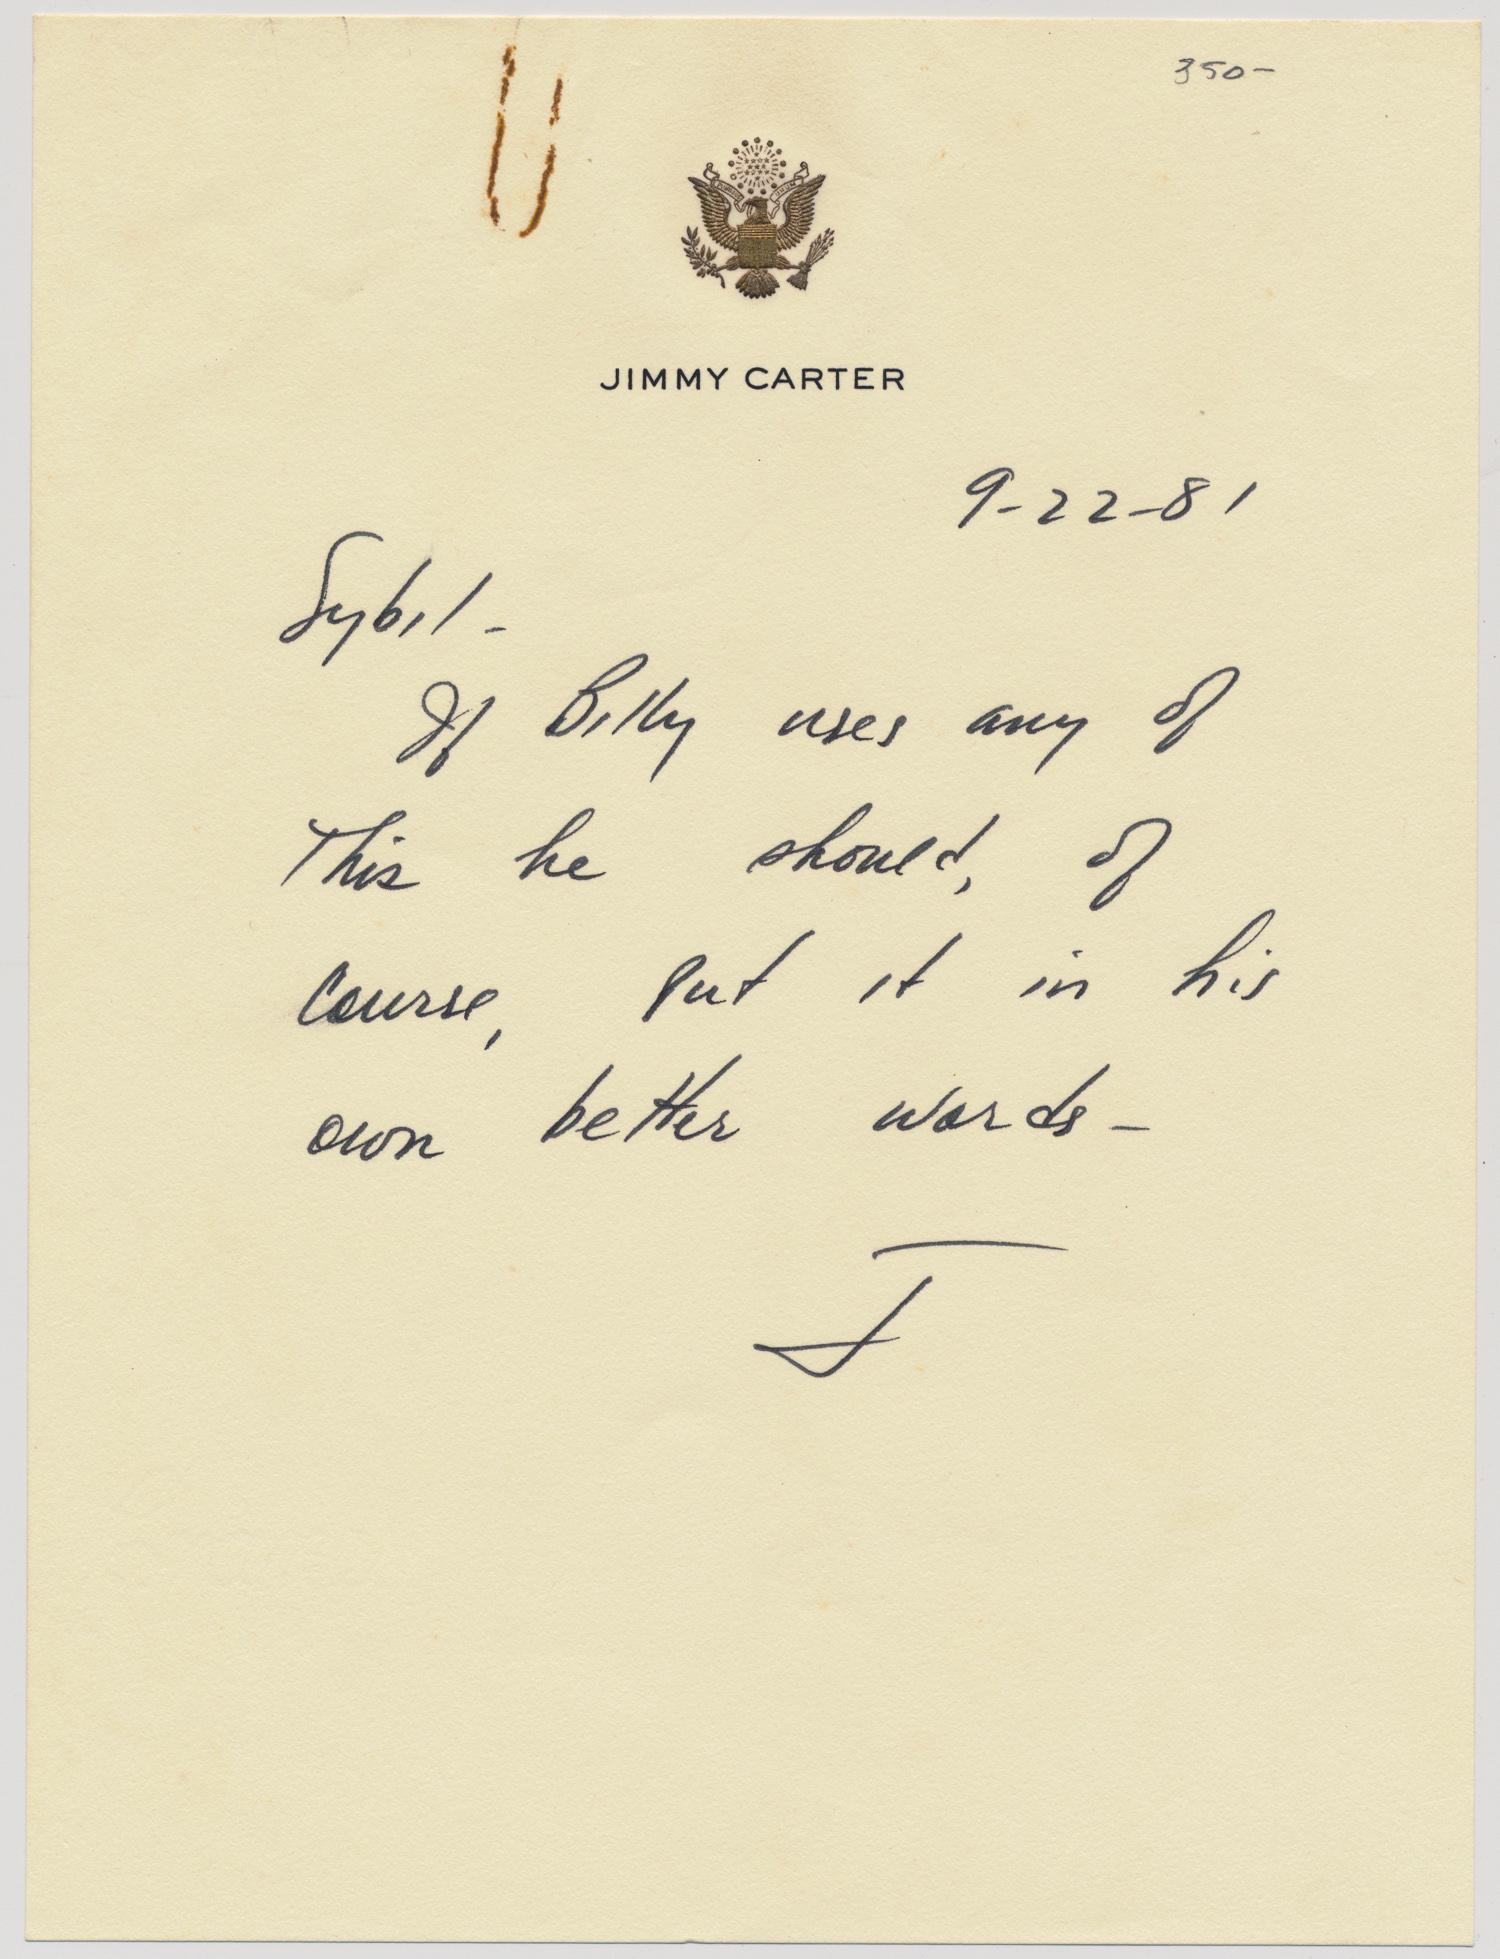 350-
JIMMY CARTER
9-22-81
Sybil -
If Billy uses any of
this he should, of
course, put it in his
own better words -
J